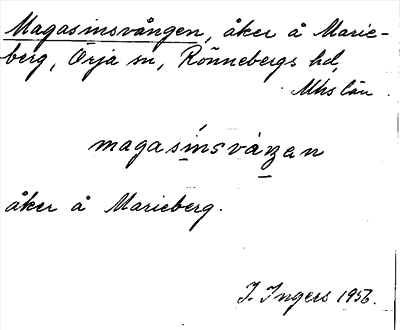 Magasinsvången, åker å Marie-
berg, Örja sn, Rönnebergs hd,
Mhs län.
magasínsvåŋan
åker å Marieberg.
I. Ingers 1956.